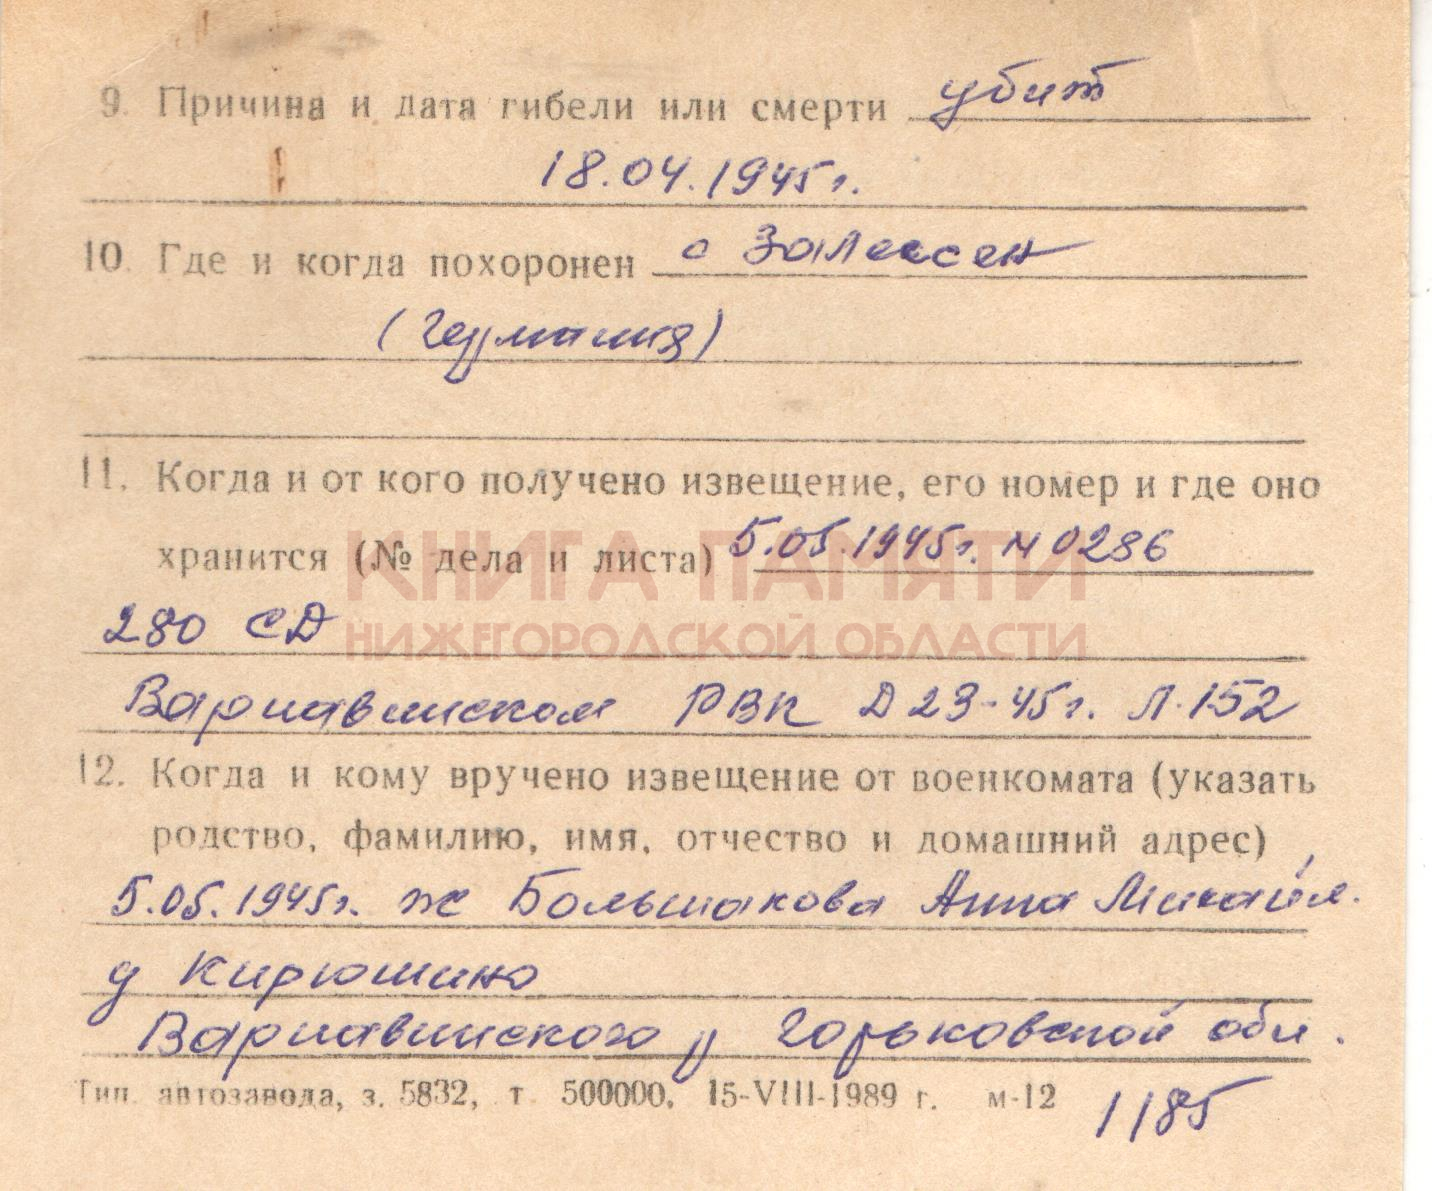 9. Причина и дата гибели или смерти убит
18.04.1945г.
10. Где и когда похоронен с Залессен
(Германия)
11. Когда и от кого получено извещение, его номер и где оно
хранится (№ дела и листа) 5.05.1945г. N 0286
КНИГА ПАМЯТИ
НИЖЕГОРОДСКОЙ ОБЛАСТИ
280 СД
Варнавинском РВК Д 23-45г. Л.152
12. Когда и кому вручено извещение от военкомата (указать
родство, фамилию, имя, отчество и домашний адрес)
5.05.1945г. ж Большакова Анна Михайл.
д Кирюшино
Варнавинского р Горьковской обл.
Тип. автозавода, з. 5832, т 500000, 15-VIII-1989 г. м-12
1185